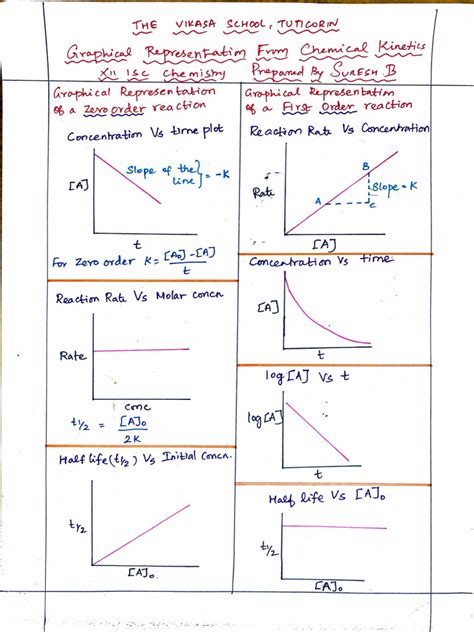 THE VIKASA SCHOOL, TUTICORIN
Graphical Representation From Chemical Kinetics
XII ISC Chemistry Prepared By SURESH.B
Graphical Representation
of a zero order reaction
Concentration Vs time plot
[A]
Slope of the
line } = -K
t
For zero order K = [A₀] - [A] / t
Reaction Rate Vs Molar concn.
Rate
conc
t1/2 = [A]₀ / 2K
Half life (t1/2) Vs Initial Concn.
t1/2
[A]₀
Graphical Representation
of a First Order reaction
Reaction Rate Vs Concentration
Rate
A
B
C
Slope = K
[A]
Concentration Vs time
[A]
t
log [A] Vs t
log [A]
t
Half life Vs [A]₀
t1/2
[A]₀